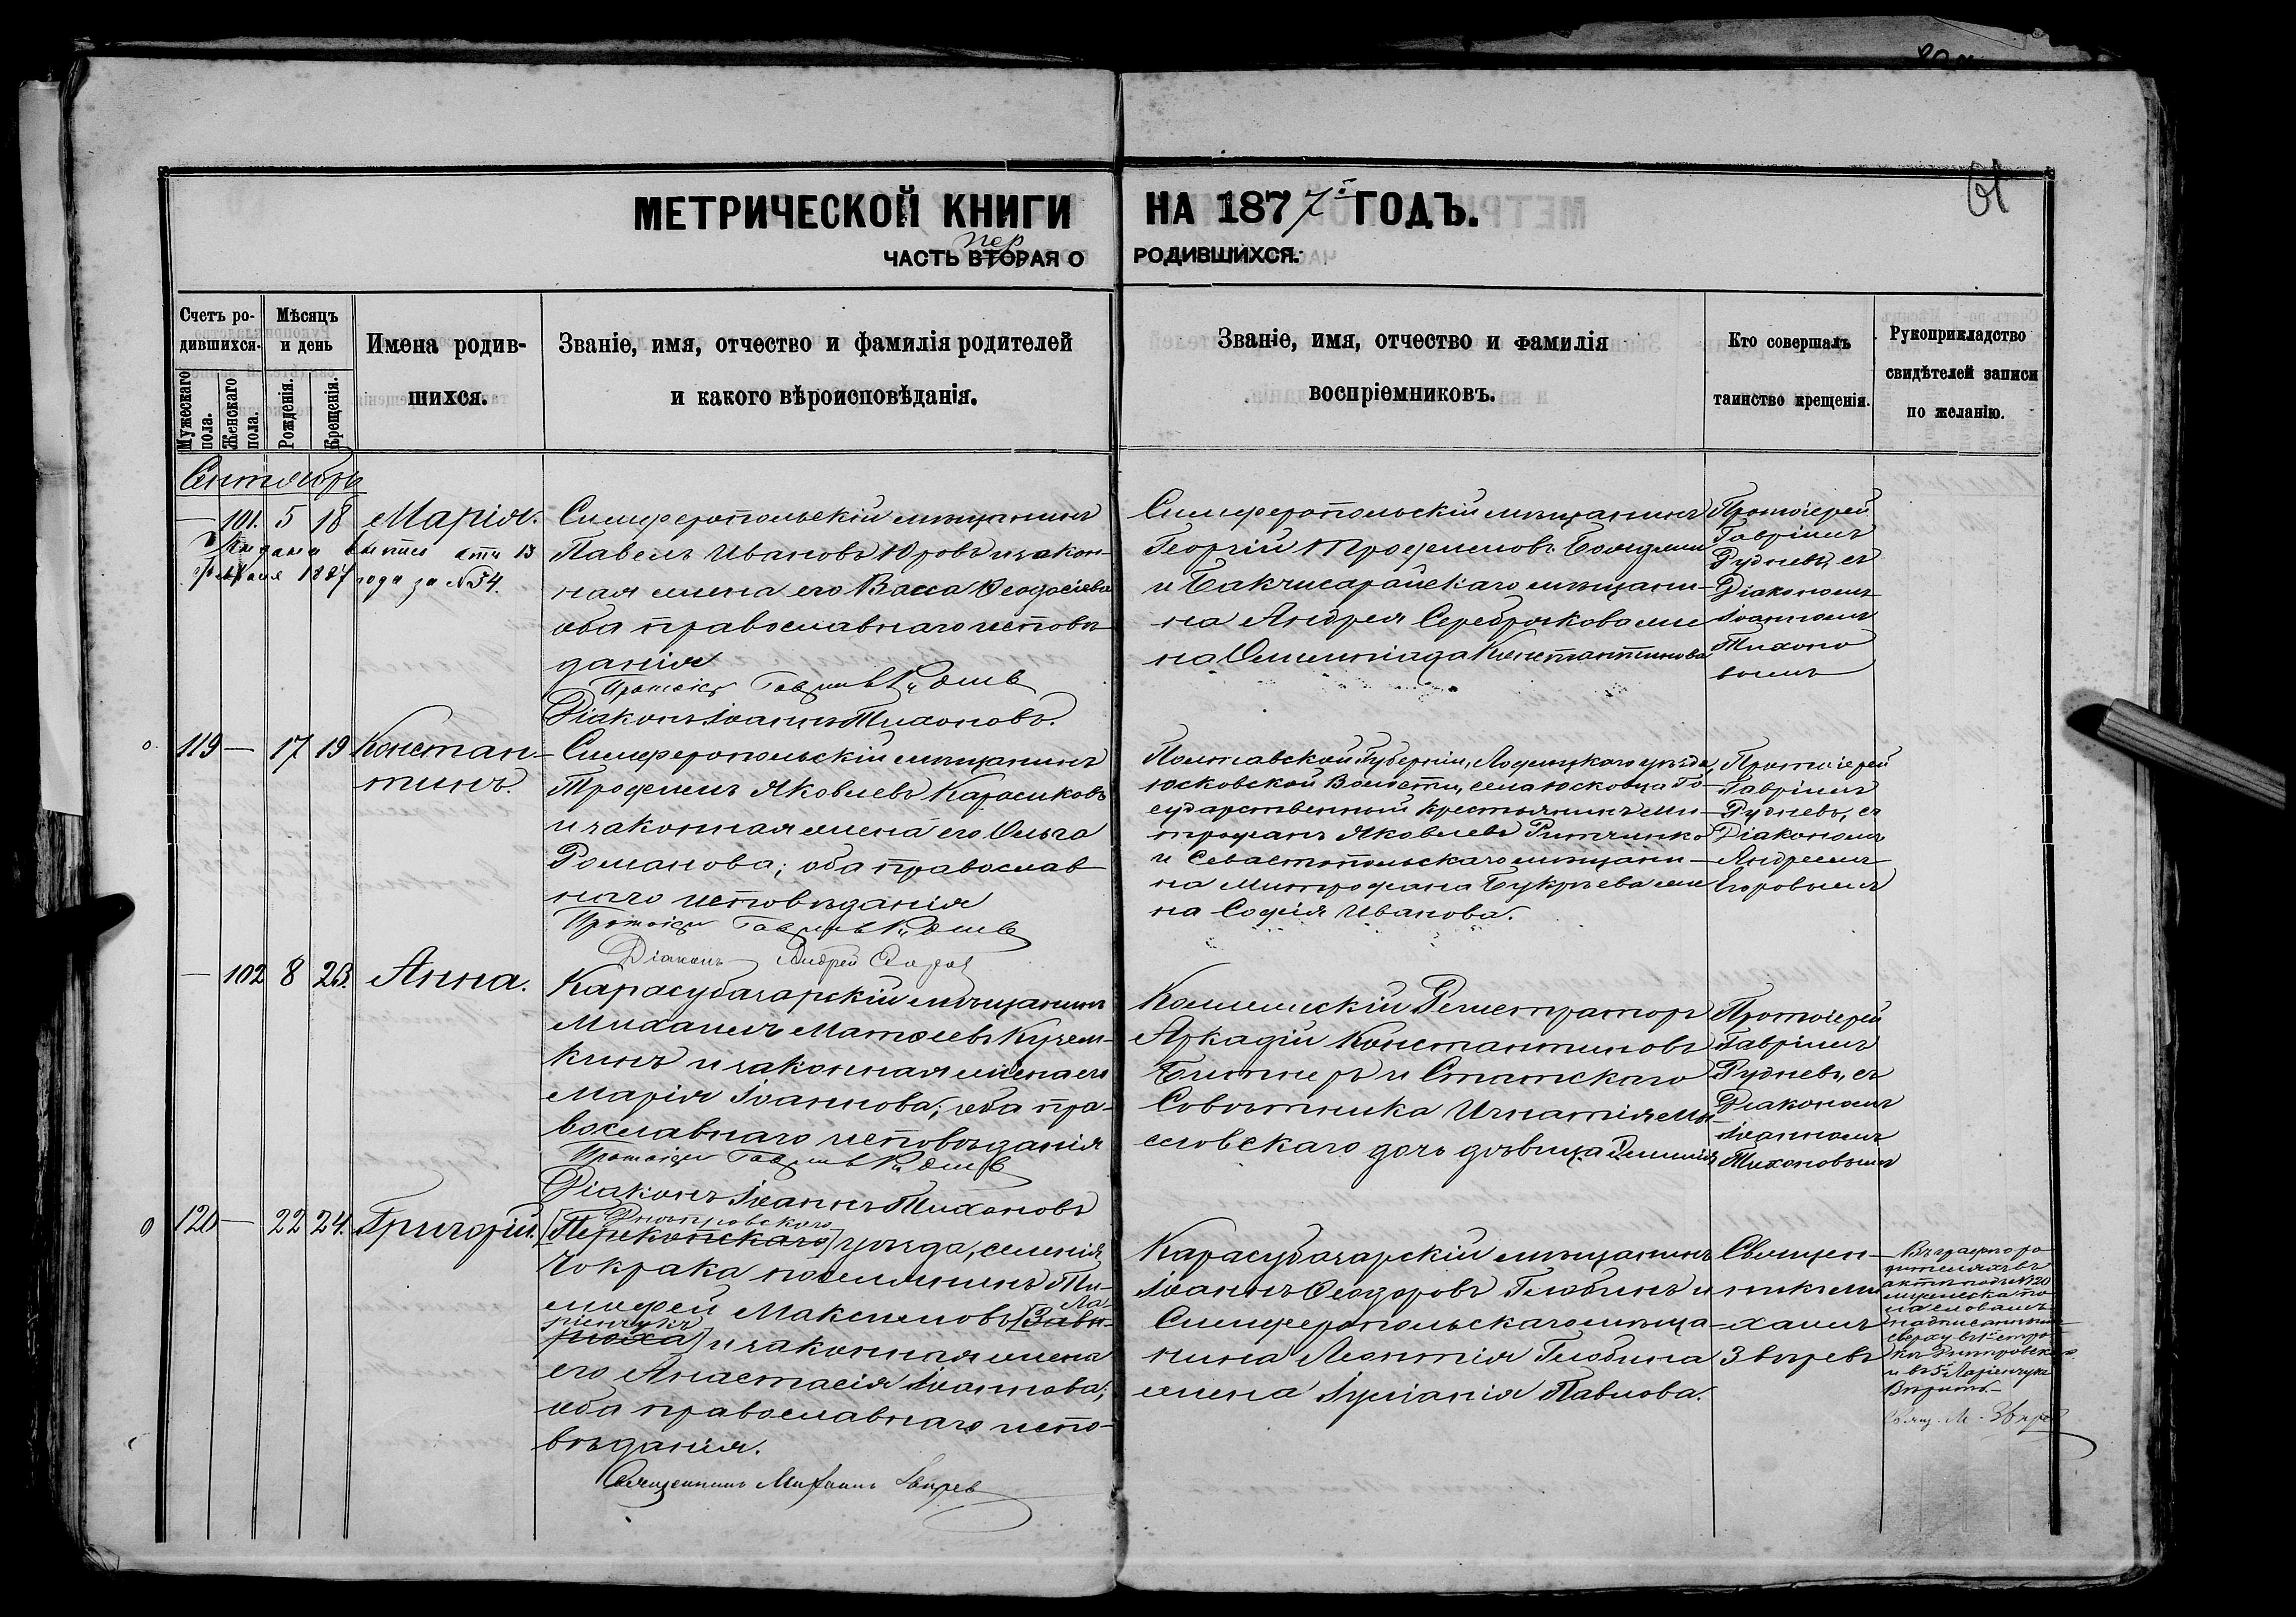 МЕТРИЧЕСКОЙ КНИГИ НА 1877й ГОДЪ.
пер
ЧАСТЬ ВТОРАЯ О РОДИВШИХСЯ.
61
Счетъ ро-
дившихся.
Мужескаго пола.
Женскаго пола.
Мѣсяцъ
и день
Рожденія.
Крещенія.
Имена родив-
шихся.
Званіе, имя, отчество и фамилія родителей
и какого вѣроисповѣданія.
Званіе, имя, отчество и фамилія
воспріемниковъ.
Кто совершалъ
таинство крещенія.
Рукоприкладство
свидѣтелей записи
по желанію.
Сентябрь
— 101. 5 18 Марія.
Выдана выпись отъ 13
Февраля 1887 года за № 34.
Симферопольскій мѣщанинъ
Павелъ Ивановъ Юровъ и закон-
ная жена его Васса Ѳеодосіева
оба православнаго исповѣ-
данія
Протоіер Гавріилъ Рудневъ
Діаконъ Іоаннъ Тихоновъ.
Симферопольскій мѣщанинъ
Георгій Трофимовъ
и Бакчисарайскаго мѣщани-
на Андрея Серебрякова же-
на Олимпіада Константинова
Протоіерей
Гавріилъ
Рудневъ, съ
Діакономъ
Іоанномъ
Тихоно
вымъ
119 — 17 19 Констан-
тинъ.
Симферопольскій мѣщанинъ
Трофимъ Яковлевъ Карасиковъ
и законная жена его Ольга
Романова; оба православ-
наго исповѣданія
Протоіер Гавріилъ Рудневъ
Діаконъ Андрей Егоровъ
Полтавской Губерніи, Лохвицкаго уѣзда,
Юсковской Волости, села Юсковца Го-
сударственный крестьянинъ Ми-
трофанъ Яковлевъ
и Севастопольскаго мѣщани-
на Митрофана Букрѣева же-
на Софія Иванова.
Протоіерей
Гавріилъ
Рудневъ, съ
Діакономъ
Андреемъ
Егоровымъ
— 102 8 23. Анна.
Карасубазарскій мѣщанинъ
Михаилъ Матѳеевъ Кузем-
кинъ и законная жена его
Марія Іоаннова; оба пра-
вославнаго исповѣданія
Протоіер Гавріилъ Рудневъ
Діаконъ Іоаннъ Тихоновъ
Коллежскій Регистраторъ
Аркадій Константиновъ
и Статскаго
Совѣтника Игнатія
словскаго дочь дѣвица
Протоіерей
Гавріилъ
Рудневъ, съ
Діакономъ
Іоанномъ
Тихоновымъ
120 — 22 24. Григорій.
Днѣпровскаго
[Перекопскаго] уѣзда, селенія
Чокрака поселянинъ Ти-
мофей Максимовъ
и законная жена
его Анастасія Іоаннова;
оба православнаго испо-
вѣданія.
Священникъ Михаилъ Звѣрев
Карасубазарскій мѣщанинъ
Іоаннъ Ѳеодоровъ Глобинъ и
Симферопольскаго мѣща-
нина Леонтія Глобина
жена Іуліанія Павлова.
Священ-
никъ Ми-
хаилъ
Звѣревъ
Въ графѣ о ро
дителяхъ въ
актѣ подъ № 120
надписанному
сверху въ 1й стро-
кѣ Днѣпровскаго
Вѣрить.—
Свящ. М. Звѣрев